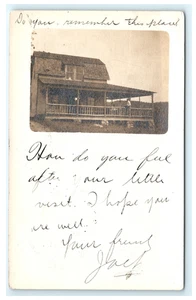 Do you remember this place
How do you feel
after our little
visit. I hope you
are well.
Your friend